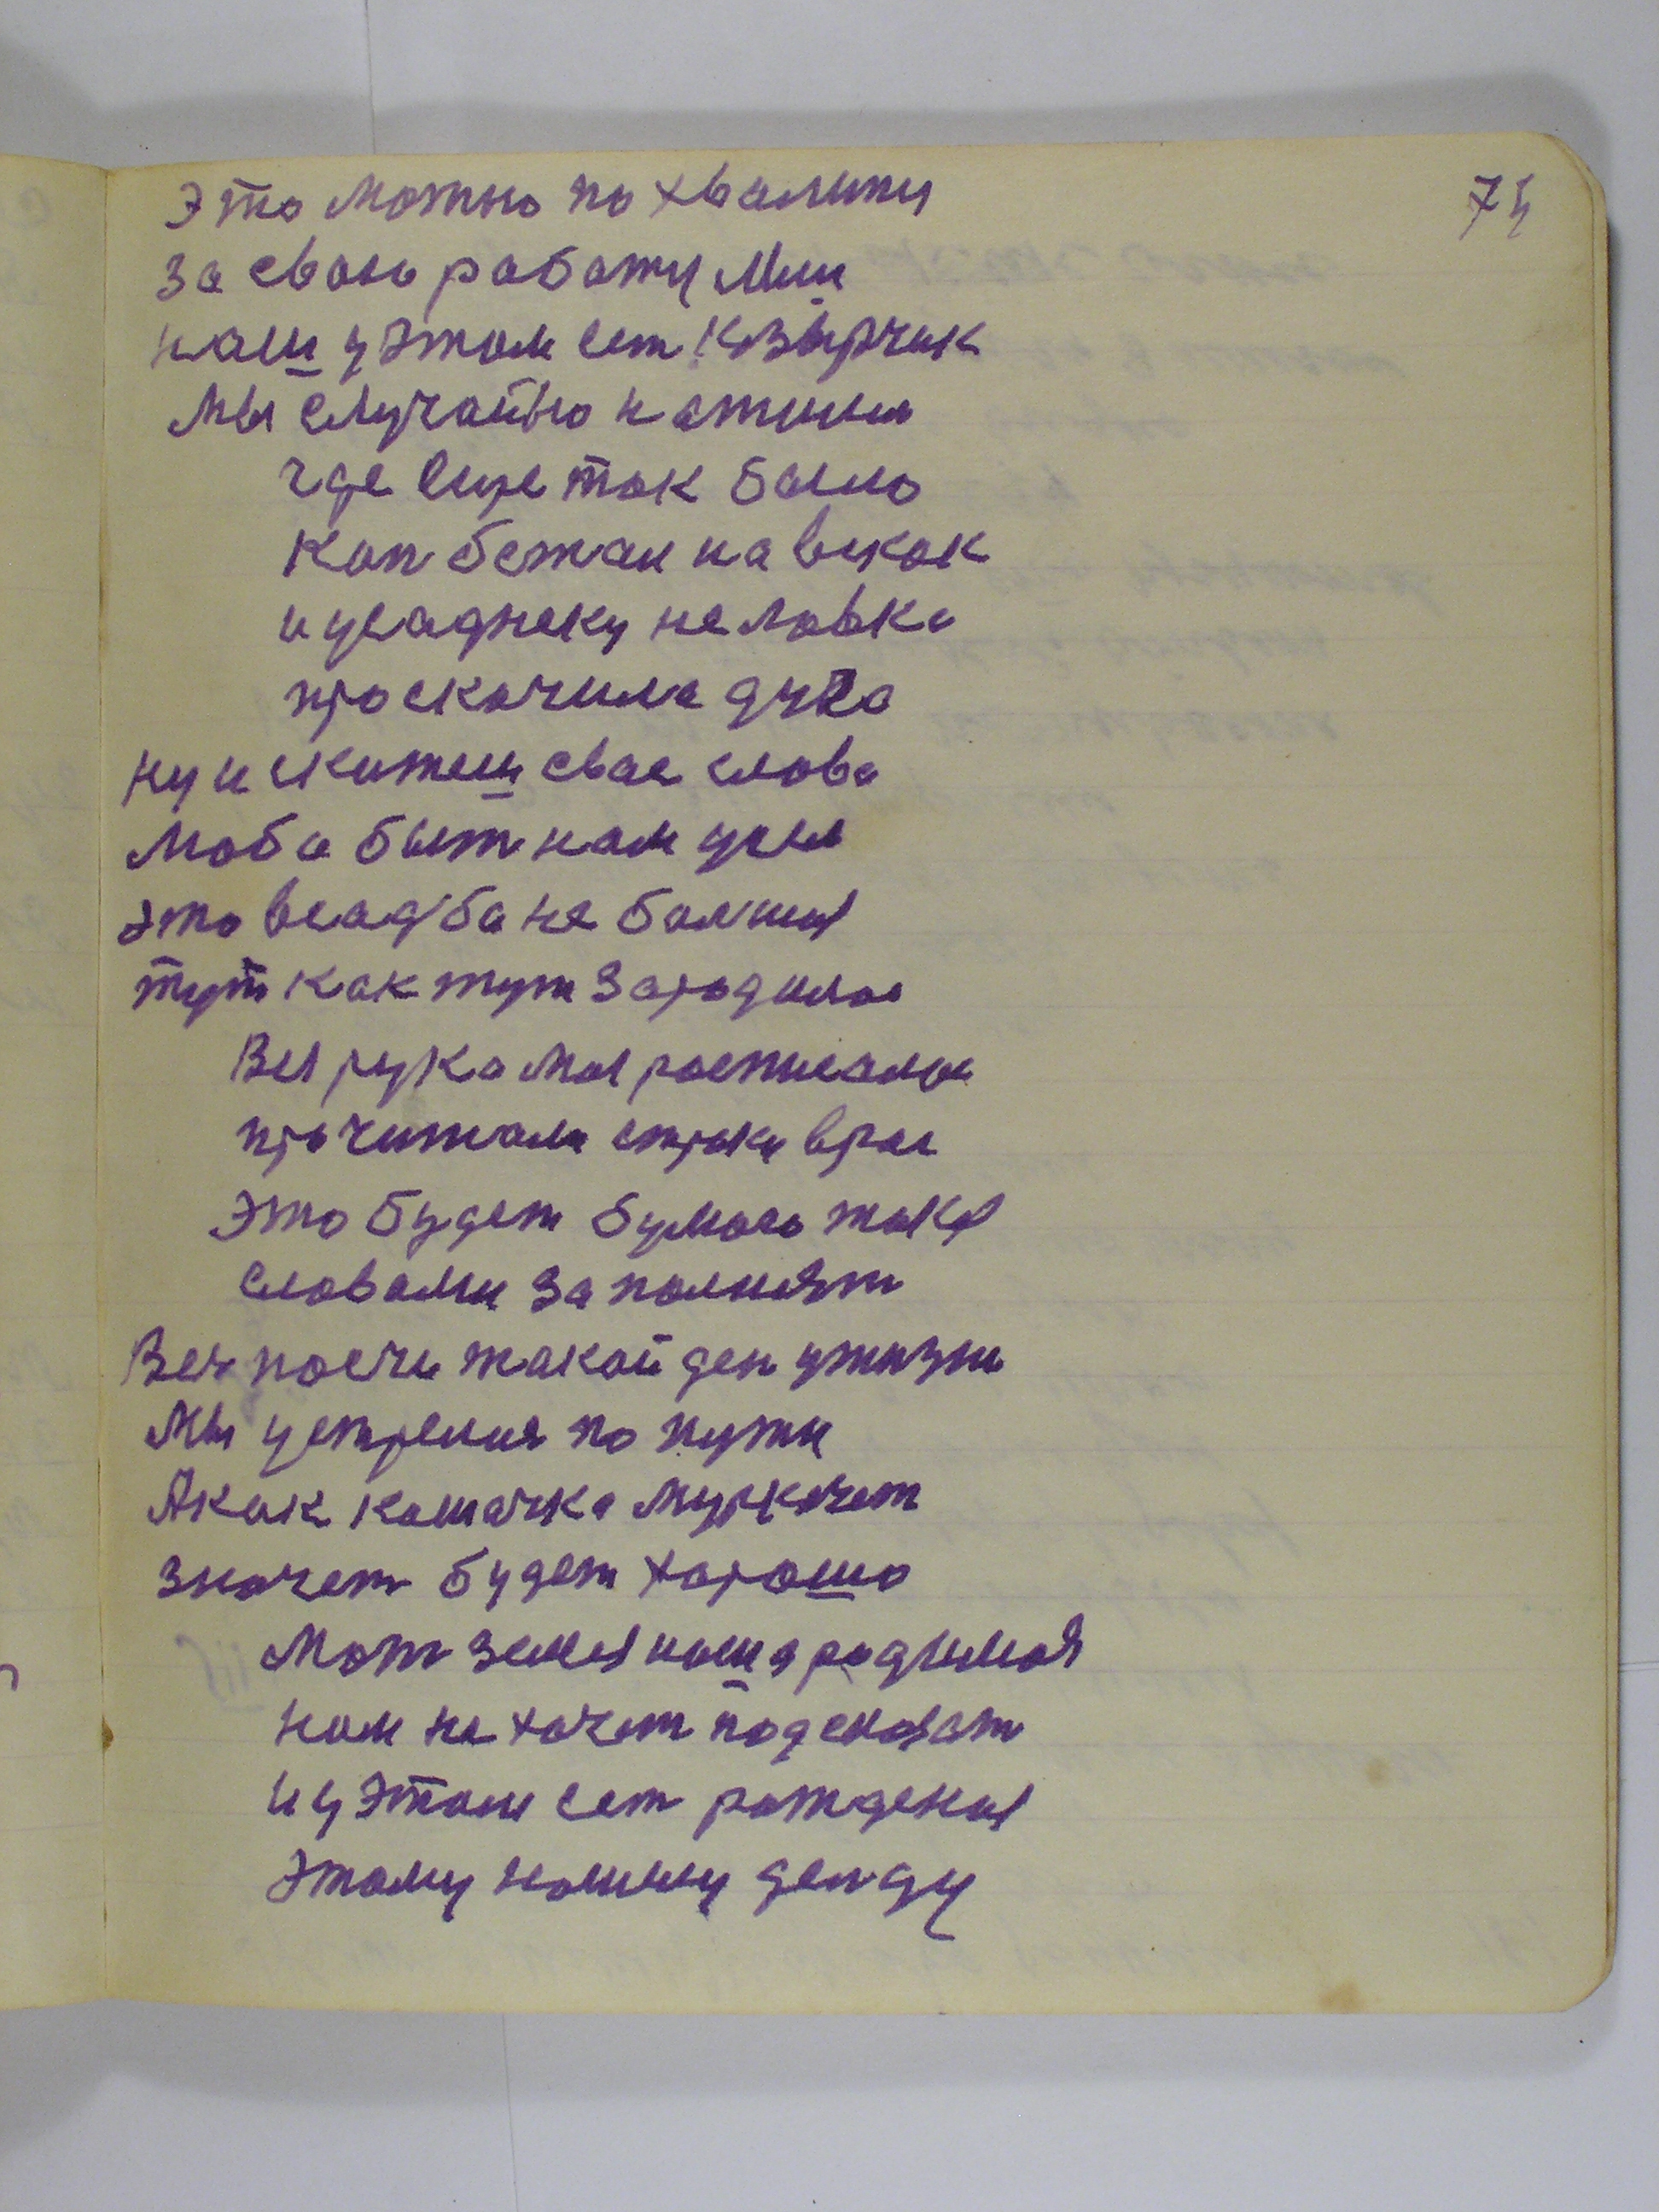 74
Это можно по хвалитя
за сваю работу мы
наш у этом ест козырчик
Мы случайно
где еще так было
Кон бежал на вскак
и усаднеку не ловка
проскочила дуга
ну и скитеш свае слова
Моба быт нам
это всадба не болшая
тут как тут зародилас
Вся рука моя росписалас
прочитали строки врас
Это будет бумага така
словами заполнят
Вет посчи такой ден ужизни
Мы устрелия по пути
А как кошачка муркочет
значет будет харошо
Мат земля наша родимая
нам не хочет подсказат
и у этом сет рождения
этому нашиму деп ду